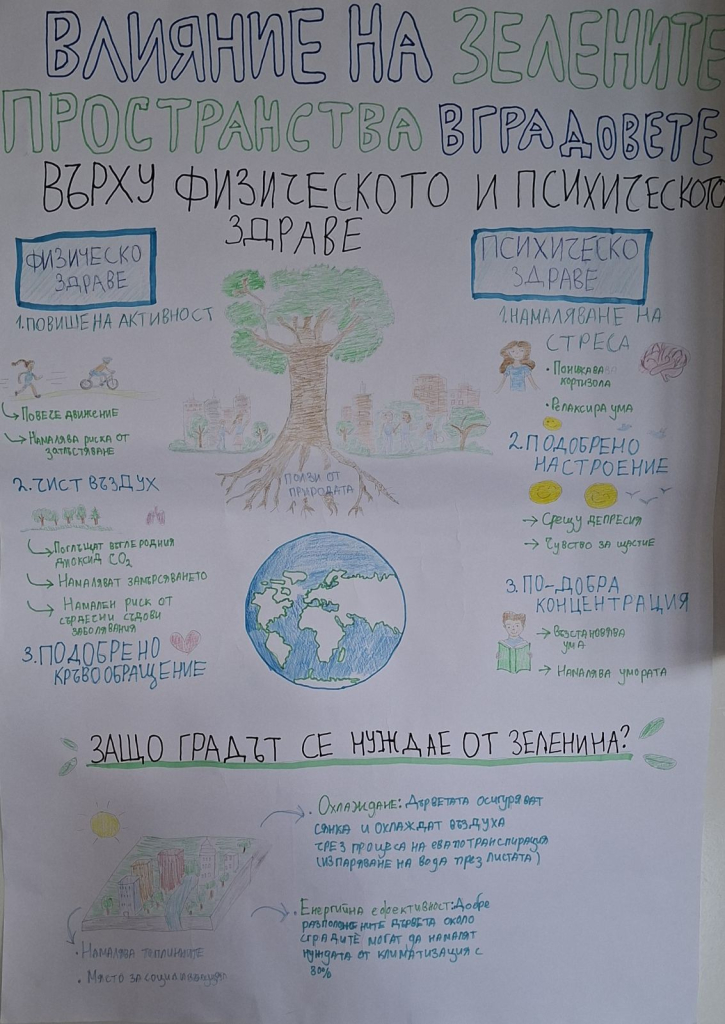 ВЛИЯНИЕ НА ЗЕЛЕНИТЕ
ПРОСТРАНСТВА В ГРАДОВЕТЕ
ВЪРХУ ФИЗИЧЕСКОТО И ПСИХИЧЕСКОТО
ЗДРАВЕ
ФИЗИЧЕСКО
ЗДРАВЕ
1. ПОВИШЕНА АКТИВНОСТ
Повече движение
Намалява риска от
затлъстяване
2. ЧИСТ ВЪЗДУХ
Поглъщат въглеродния
диоксид CO2
Намаляват замърсяването
Намален риск от
сърдесни съдови
заболявания
3. ПОДОБРЕНО
КРЪВООБРАЩЕНИЕ
ПОЛЗИ ОТ
ПРИРОДАТА
ПСИХИЧЕСКО
ЗДРАВЕ
1. НАМАЛЯВАНЕ НА
СТРЕСА
• Понижава
кортизола
• Релаксира ума
2. ПОДОБРЕНО
НАСТРОЕНИЕ
→ Срещу депресия
→ Чувство за щастие
3. ПО-ДОБРА
КОНЦЕНТРАЦИЯ
→ Възстановява
ума
→ Намалява умората
ЗАЩО ГРАДЪТ СЕ НУЖДАЕ ОТ ЗЕЛЕНИНА?
• Охлаждане: Дърветата осигуряват
сянка и охлаждат въздуха
чрез процеса на евапотранспирация
(изпаряване на вода през листата)
• Енергийна ефективност: Добре
разположените дървета около
сградите могат да намалят
нуждата от климатизация с
30%
• Намалява топлинните
• Място за